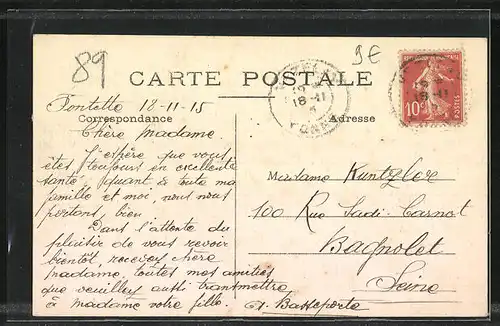 89
9E
CARTE POSTALE
Fontette 18-11-15
Correspondance
Adresse
YONNE
18-11
10c
POSTES
Chère madame.
J'espère que vous
êtes toujours en excellente
santé. quant à toute ma
famille et moi nous nous
portons bien
Dans l'attente du
plaisir de vous revoir
bientôt, recevez chère
madame, toutes mes amitiés
que veuillez aussi transmettre
à madame votre fille.
G. Basseporte
Madame Kuntzler
100 Rue Sadi-Carnot
Bagnolet
Seine